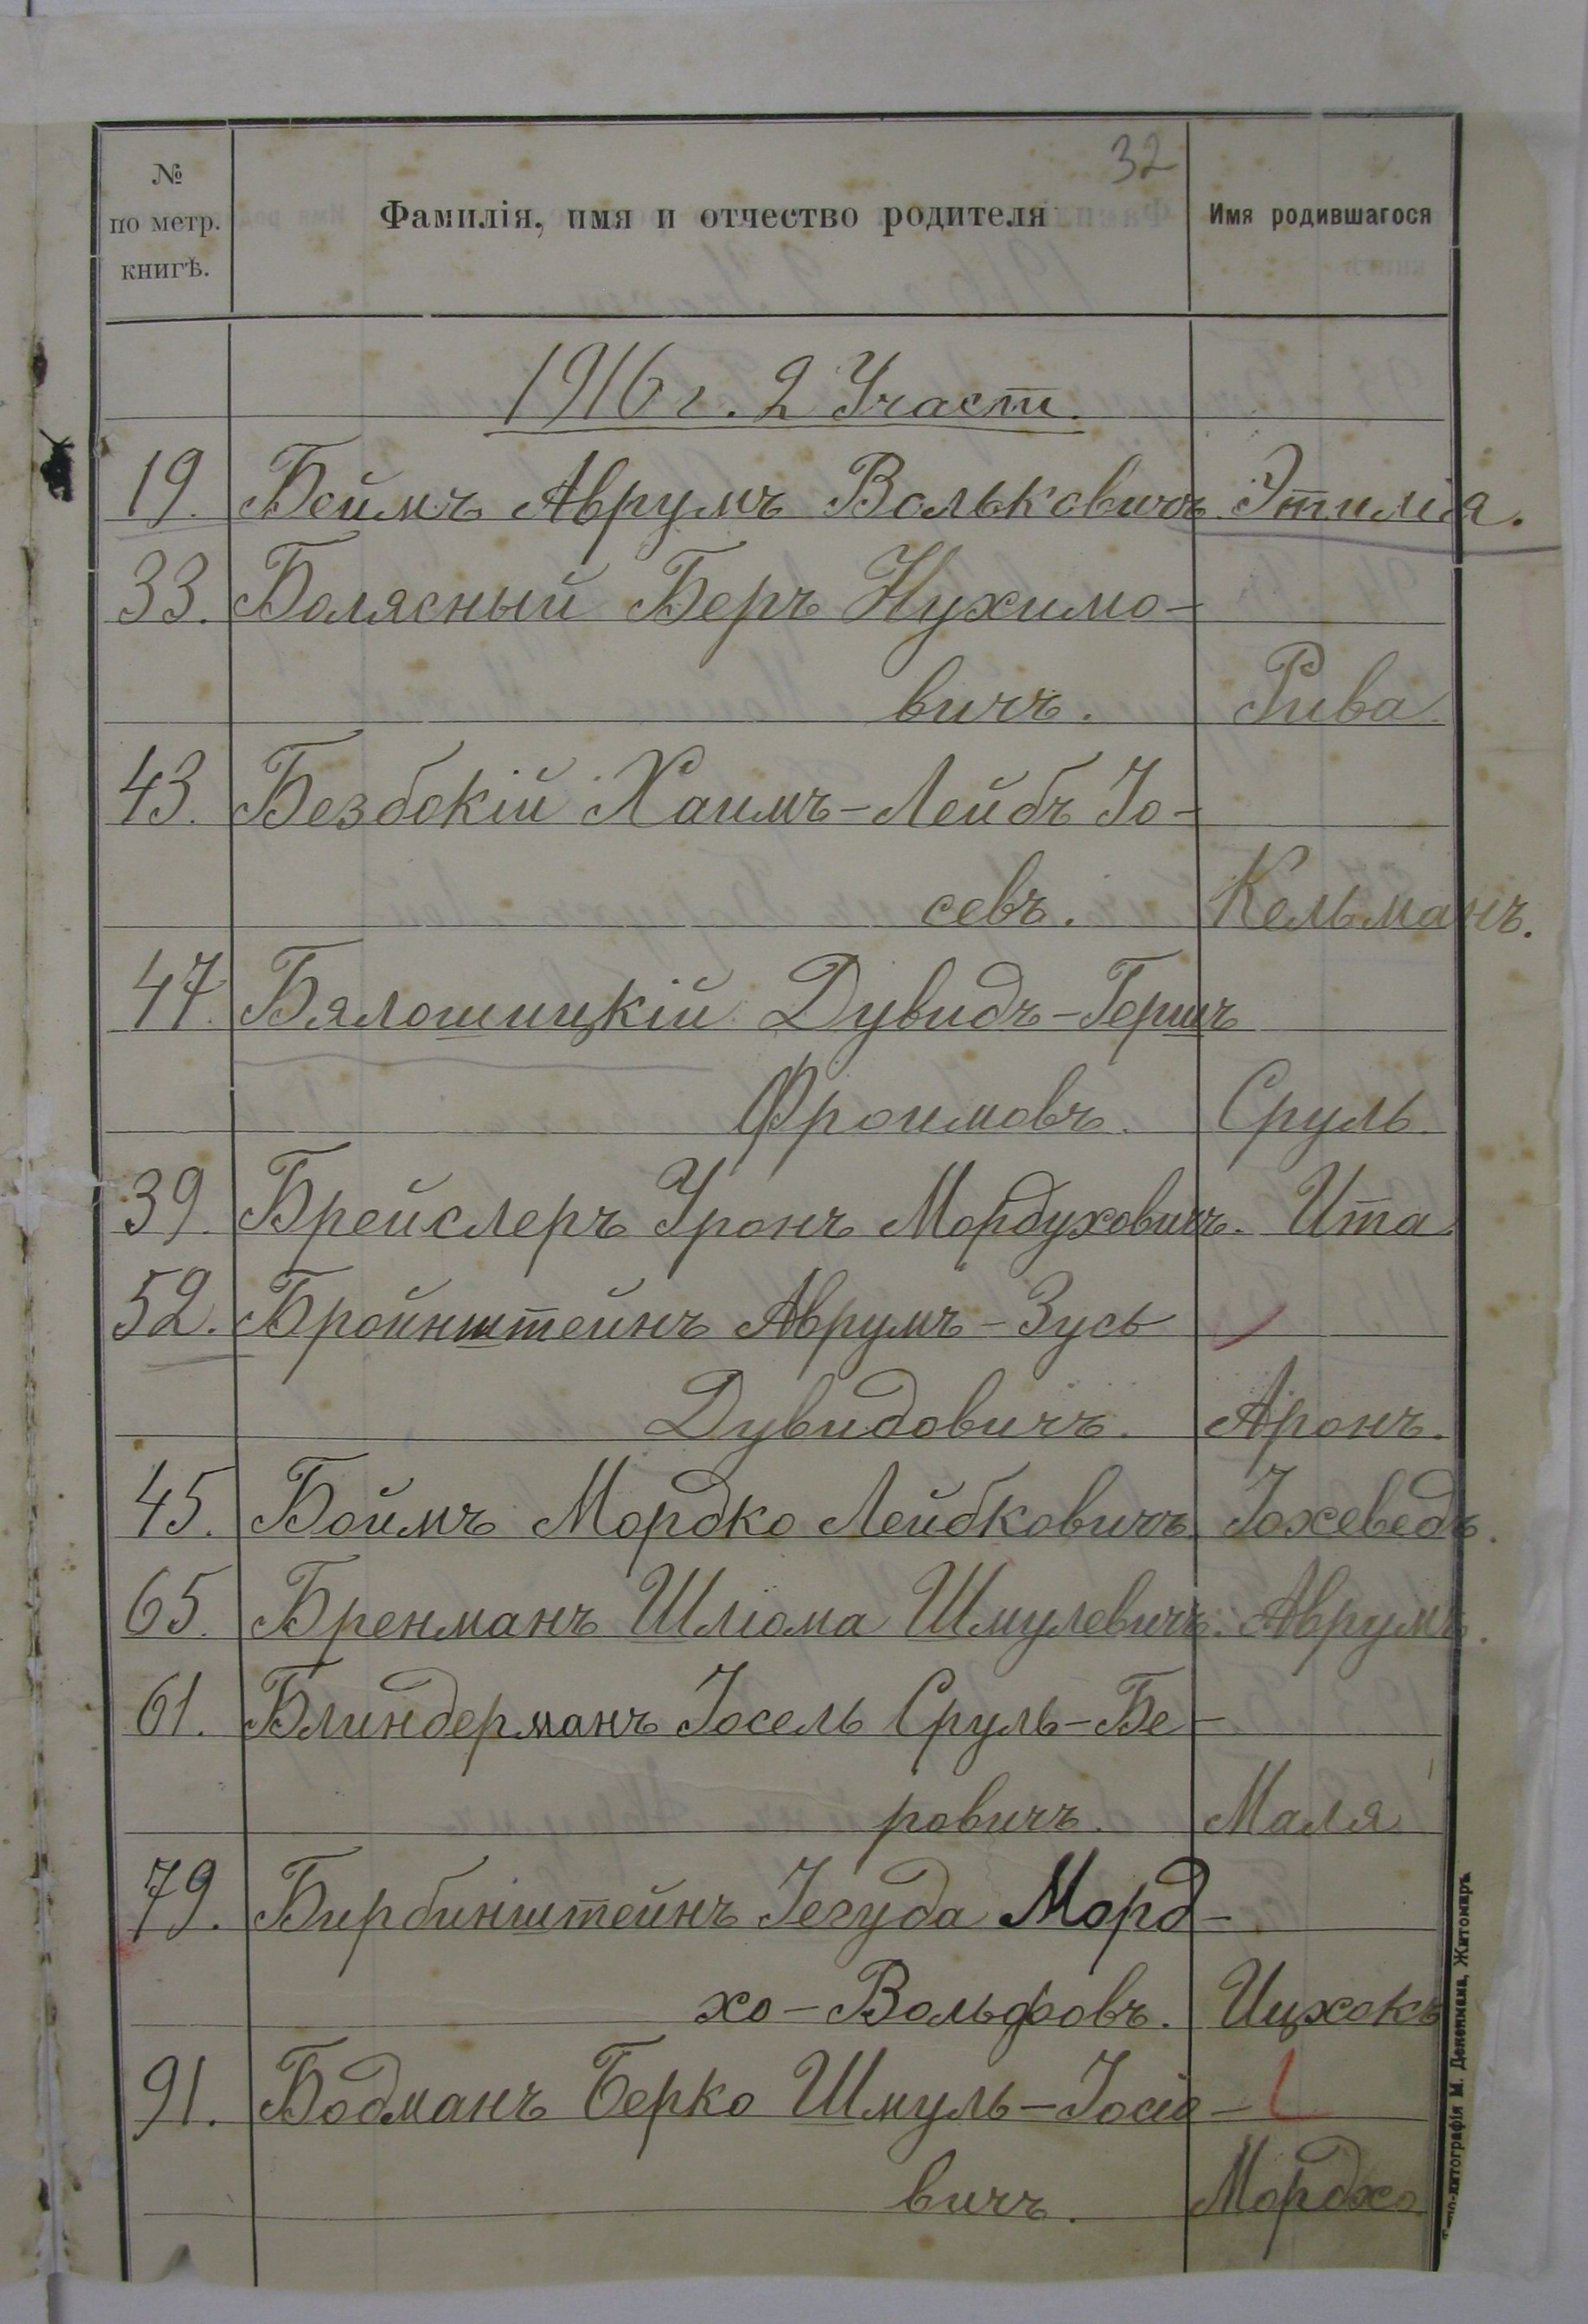 32
№ по метр. книгѣ. Фамилія, имя и отчество родителя Имя родившагося
1916 г. 2 Участ.
19. Беймъ Аврумъ Вольковичъ Этилія.
33. Болясный Беръ Нухимо-
вичъ. Рива.
43. Безбокій Хаимъ-Лейбъ Іо-
севъ. Кельманъ.
47. Бялошицкій Дувидъ-Гершъ
Фроимовъ. Сруль.
39. Брейслеръ Уронъ Мордуховичъ. Ита.
52. Бройнштейнъ Аврумъ-Зусь
Дувидовичъ. Аронъ.
45. Боймъ Мордко Лейбковичъ. Іохеведъ.
65. Бренманъ Шліома Шмулевичъ. Аврумъ.
61. Блиндерманъ Іосель Сруль-Бе-
ровичъ. Маля
79. Бирбинштейнъ Іегуда Морд-
хо-Вольфовъ. Ицхокъ
91. Бодманъ Берко Шмуль-Іосіо-
вичъ. Мордхо.
Типо-литографія М. Дененмана, Житомиръ.